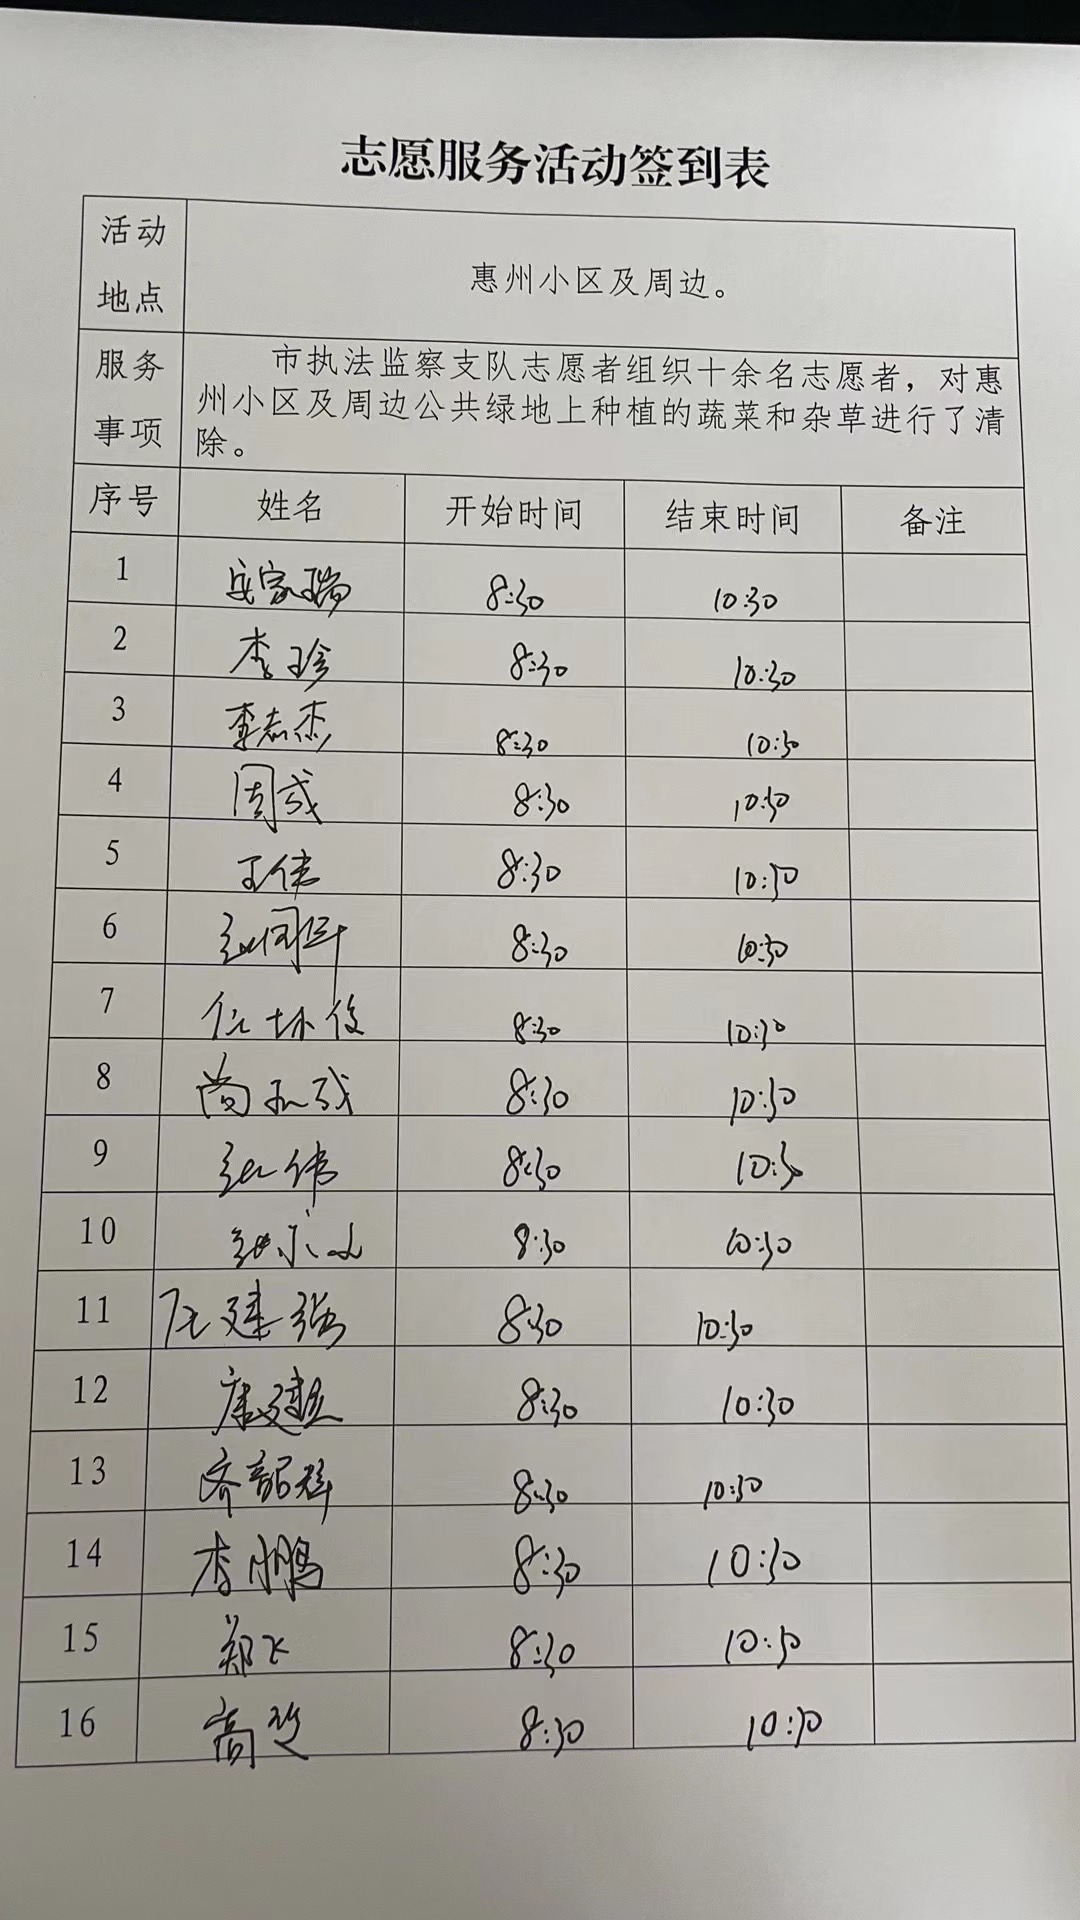 志愿服务活动签到表
活动
地点
惠州小区及周边。
服务
事项
市执法监察支队志愿者组织十余名志愿者，对惠
州小区及周边公共绿地上种植的蔬菜和杂草进行了清
除。
序号 姓名 开始时间 结束时间 备注
1 家瑞 8:30 10:30
2 李珍 8:30 10:30
3 李志杰 8:30 10:30
4 周成 8:30 10:30
5 王伟 8:30 10:30
6 8:30 10:30
7 8:30 10:30
8 尚 8:30 10:30
9 伟 8:30 10:30
10 8:30 10:30
11 庄建强 8:30 10:30
12 唐建 8:30 10:30
13 齐韶辉 8:30 10:30
14 李鹏 8:30 10:30
15 郑飞 8:30 10:30
16 高 8:30 10:30